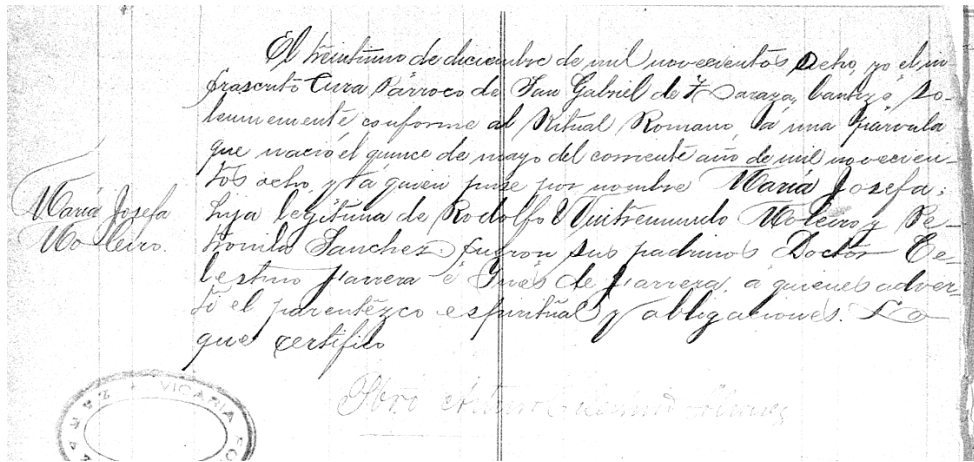 El treintiuno de diciembre de mil novecientos ocho, yo el in-
frascrito Cura Párroco de San Gabriel de Zaraza, bautizé so-
lemnemente conforme al Ritual Romano, á una párvula
que nació el quince de mayo del corriente año de mil novecien-
tos ocho, y á quien puse por nombre María Josefa:
María Josefa
Moleiro.
hija legítima de Rodolfo Moleiro y Pe-
tronila Sanchez fueron sus padrinos Doctor Ce-
lestino Farrera é Inés de Farrera, á quienes adver-
tí el parentezco espiritual y obligaciones. Lo
que certifico
Pbro Arturo Celestino Alvarez
VICARIA FO